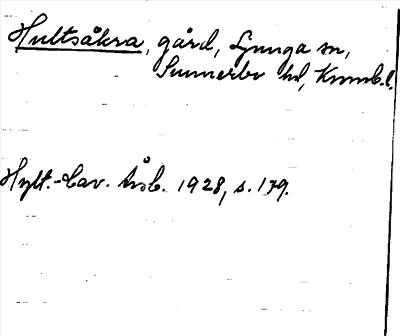 Hultsåkra, gård, Ljunga sn,
Sunnerbo hd, Kronob. l.
Hylt.-Cav. årsb. 1928, s. 179.